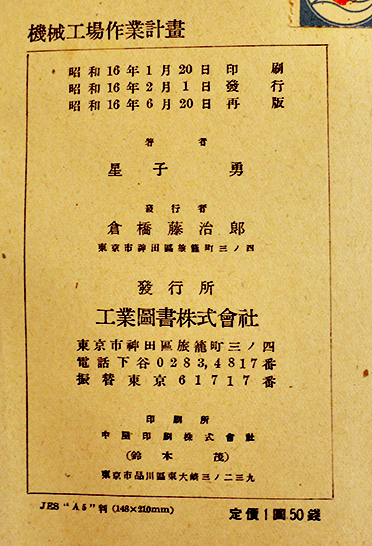 機械工場作業計畫
昭和16年1月20日印刷
昭和16年2月1日發行
昭和16年6月20日再版
著者
星子勇
發行者
倉橋藤治郎
東京市神田區旅籠町三ノ四
發行所
工業圖書株式會社
東京市神田區旅籠町三ノ四
電話下谷0283,4817番
振替東京61717番
印刷所
中屋印刷株式會社
(鈴木茂)
東京市品川區東大崎三ノ二三九
JES "A5" 判 (148×210mm)
定價1圓50錢